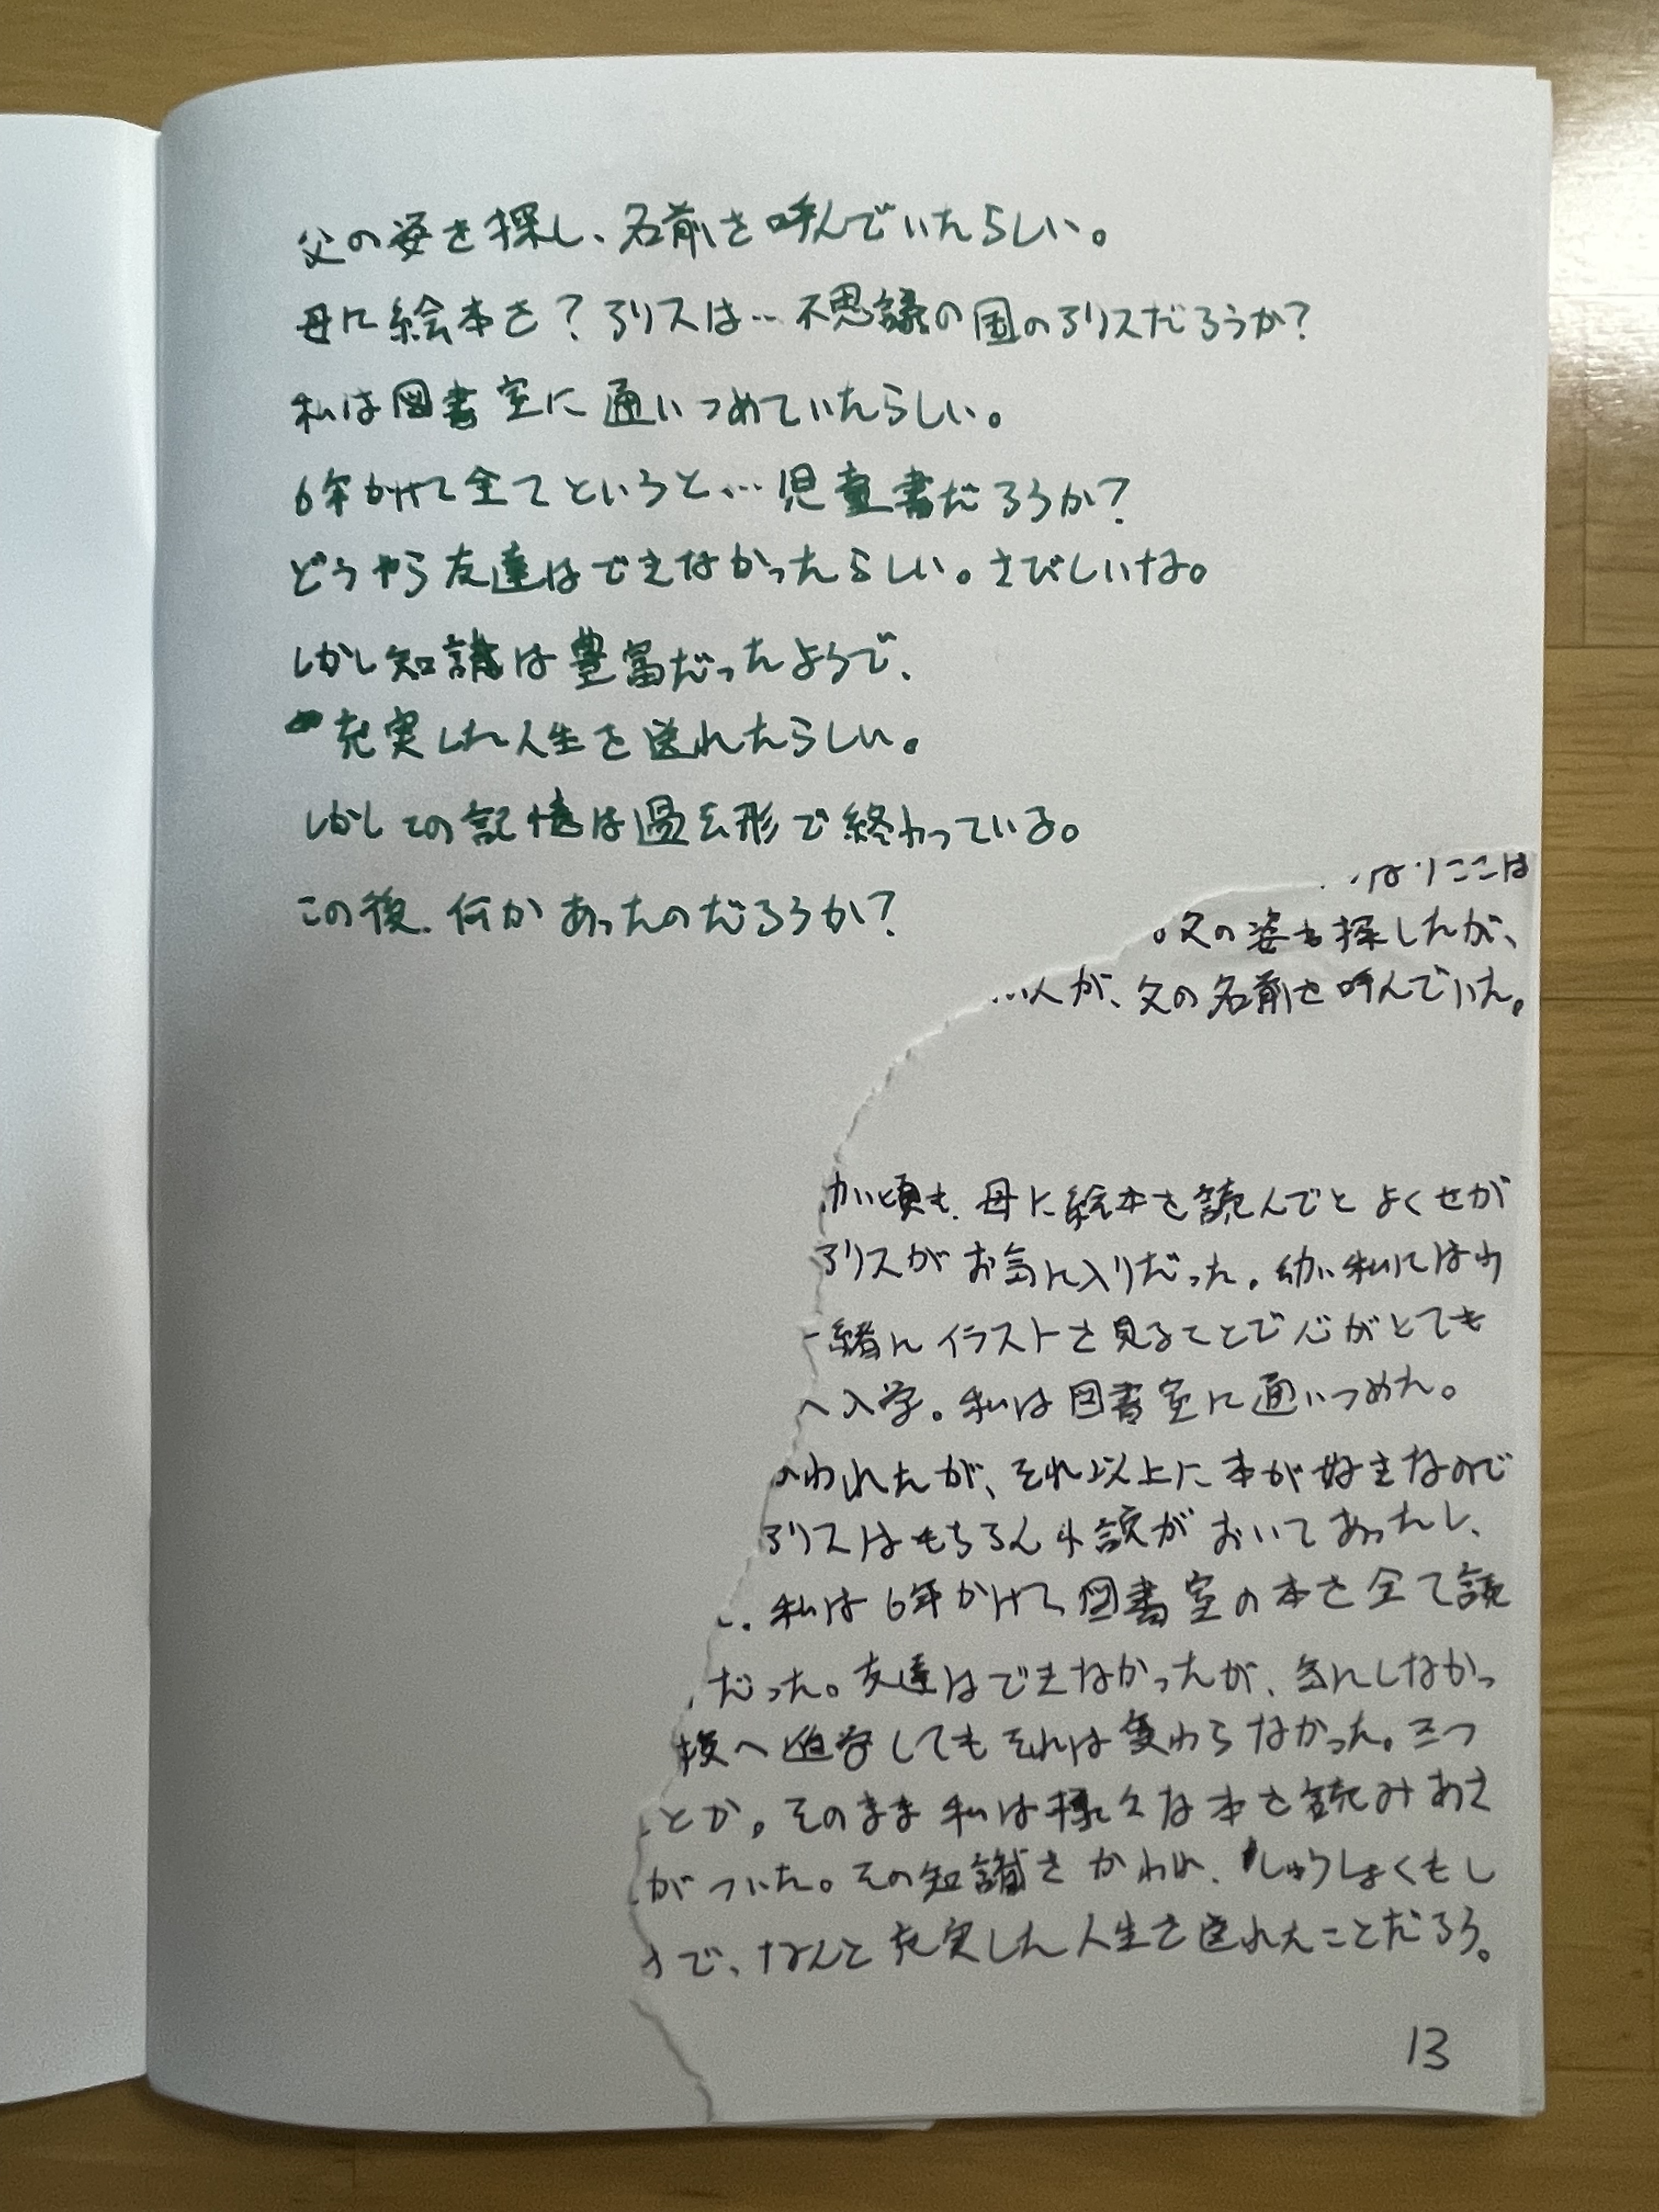 父の姿を探し、名前を呼んでいたらしい。
母に絵本を?アリスは…不思議の国のアリスだろうか?
私は図書室に通いつめていたらしい。
6年かけて全てというと…児童書だろうか?
どうやら友達はできなかったらしい。さびしいな。
しかし知識は豊富だったようで、
充実した人生を送れたらしい。
しかしこの記憶は過去形で終わっている。
この後、何かあったのだろうか?
はりここは
。父の姿を探したが、
人が、父の名前を呼んでいた。
い頃も、母に絵本を読んでとよくせが
アリスがお気に入りだった。幼い私にはわ
緒にイラストを見ることで心がとても
へ入学。私は図書室に通いつめた。
われたが、それ以上に本が好きなので
アリスはもちろん小説がおいてあったし、
私は6年かけて図書室の本を全て読
だった。友達はできなかったが、気にしなかっ
校へ進学してもそれは変わらなかった。三つ
とか。そのまま私は様々な本を読みあさ
がついた。その知識をかわれ、しゅうしょくもし
で、なんと充実した人生を送れたことだろう。
13